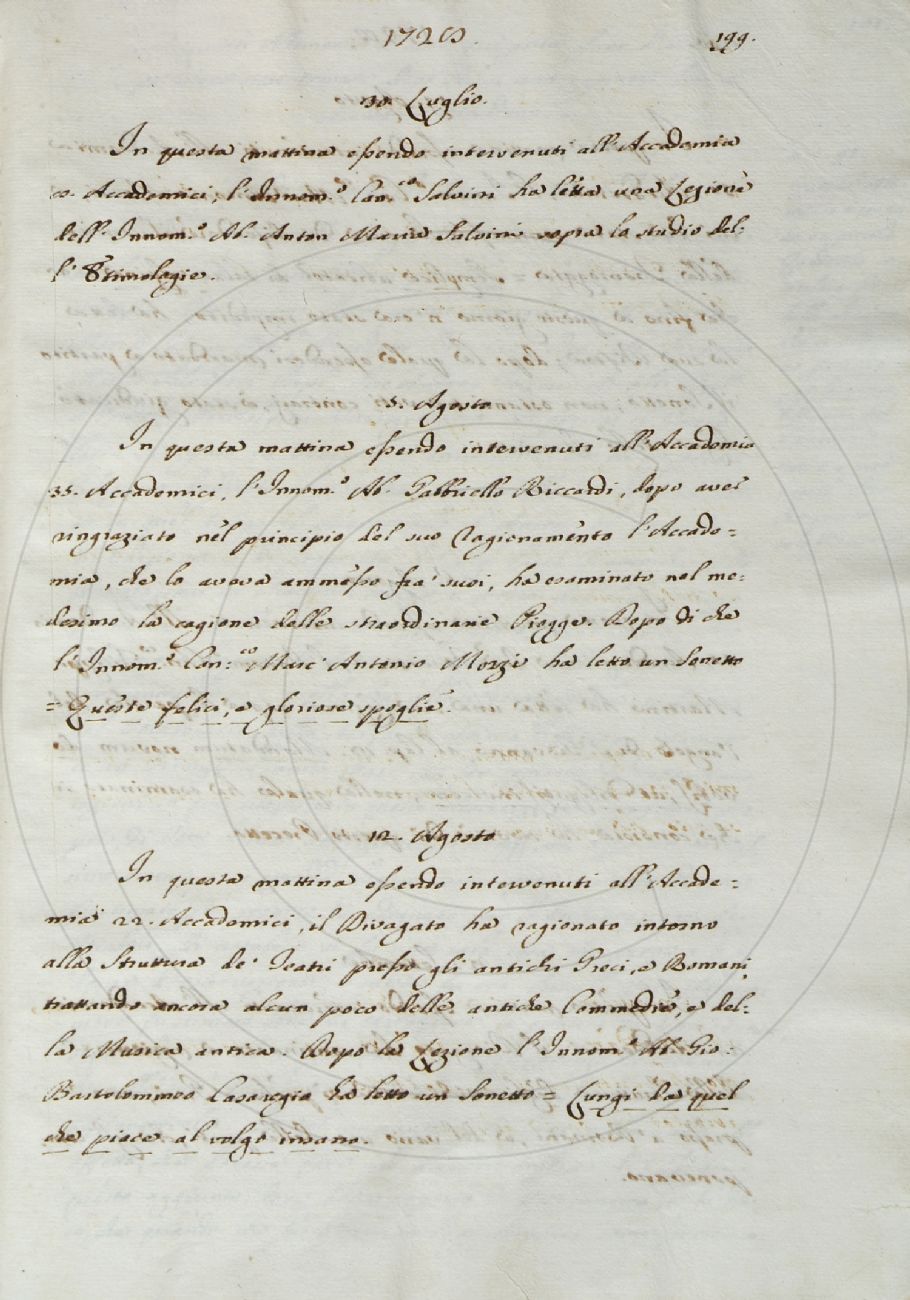 1728. 199.
30. Luglio.
In questa mattina essendo intervenuti all'Accademia
Accademici, l'Innom.º Can.co Salvini ha letta una Lezione
dell'Innom.º Ab. Anton Maria Salvini sopra lo studio del-
l'Etimologie.
5. Agosto
In questa mattina essendo intervenuti all'Accademia
35. Accademici, l'Innom.º Ab. Gabbriello Riccardi, dopo aver
ringraziato nel principio del suo Ragionamento l'Accade=
mia, che lo aveva ammesso fra' suoi, ha esaminato nel me=
desimo la cagione delle straordinarie Piogge. Dopo di che
l'Innom.º Can.co Marc'Antonio Mozzi ha letto un Sonetto
= Queste felici, e gloriose spoglie.
12. Agosto
In questa mattina essendo intervenuti all'Accade=
mia 22. Accademici, il Divagato ha ragionato intorno
alla Struttura de' Teatri presso gli antichi Greci, e Romani,
trattando ancora alcun poco delle antiche Commedie, e del=
la Musica antica. Dopo la Lezione l'Innom.º Ab. Gio:
Bartolommeo Casaregio ha letto un Sonetto = Lungi da quel
che piace al volgo insano.